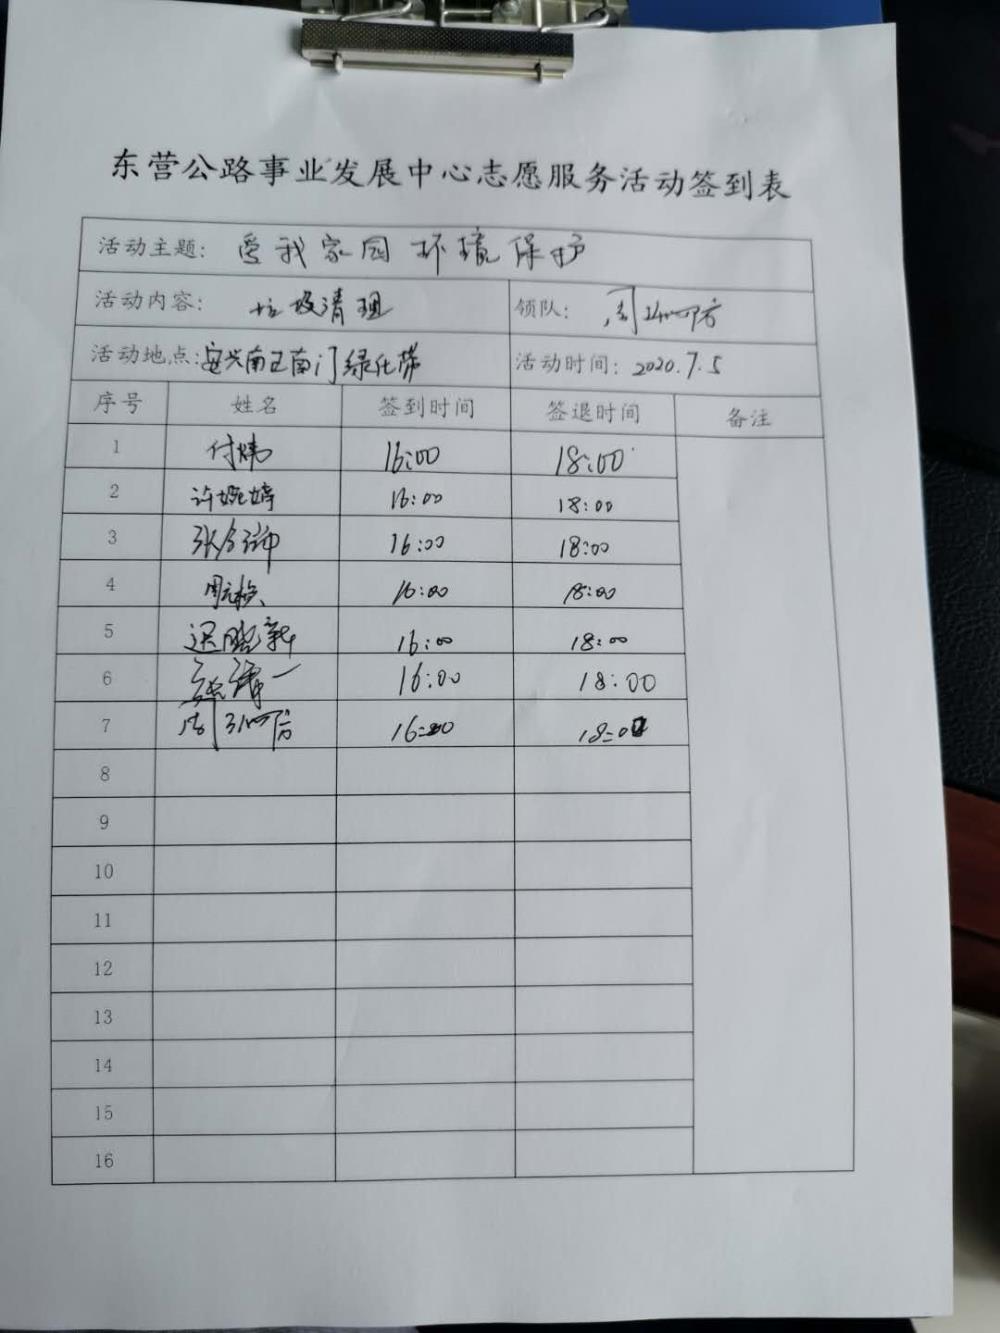 东营公路事业发展中心志愿服务活动签到表
活动主题: 爱我家园 环境保护
活动内容: 垃圾清理 领队:
活动地点: 安兴南区南门绿化带 活动时间: 2020.7.5
序号 姓名 签到时间 签退时间 备注
1 付炜 16:00 18:00
2 许婉婷 16:00 18:00
3 16:00 18:00
4 16:00 18:00
5 迟晓新 16:00 18:00
6 16:00 18:00
7 16:00 18:00
8
9
10
11
12
13
14
15
16